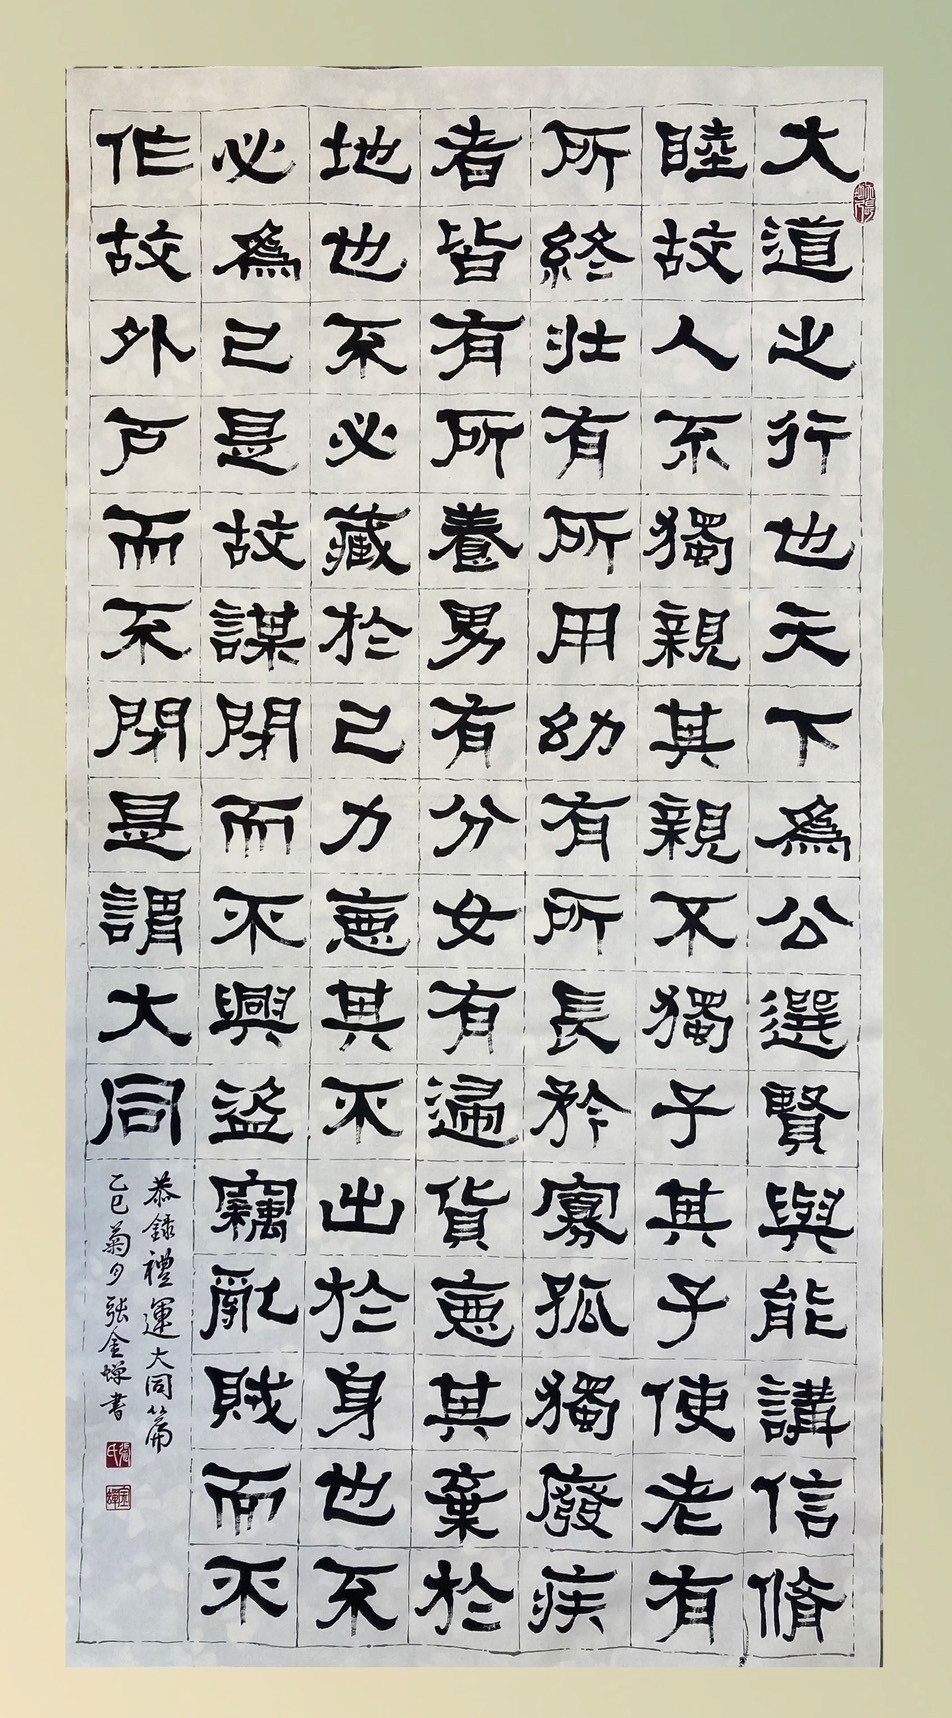 大道之行也天下為公選賢與能講信脩
睦故人不獨親其親不獨子其子使老有
所終壯有所用幼有所長矜寡孤獨廢疾
者皆有所養男有分女有歸貨惡其棄於
地也不必藏於己力惡其不出於身也不
必為己是故謀閉而不興盜竊亂賊而不
作故外戶而不閉是謂大同
恭錄禮運大同篇
乙巳菊月張金蟬書
張氏
金蟬